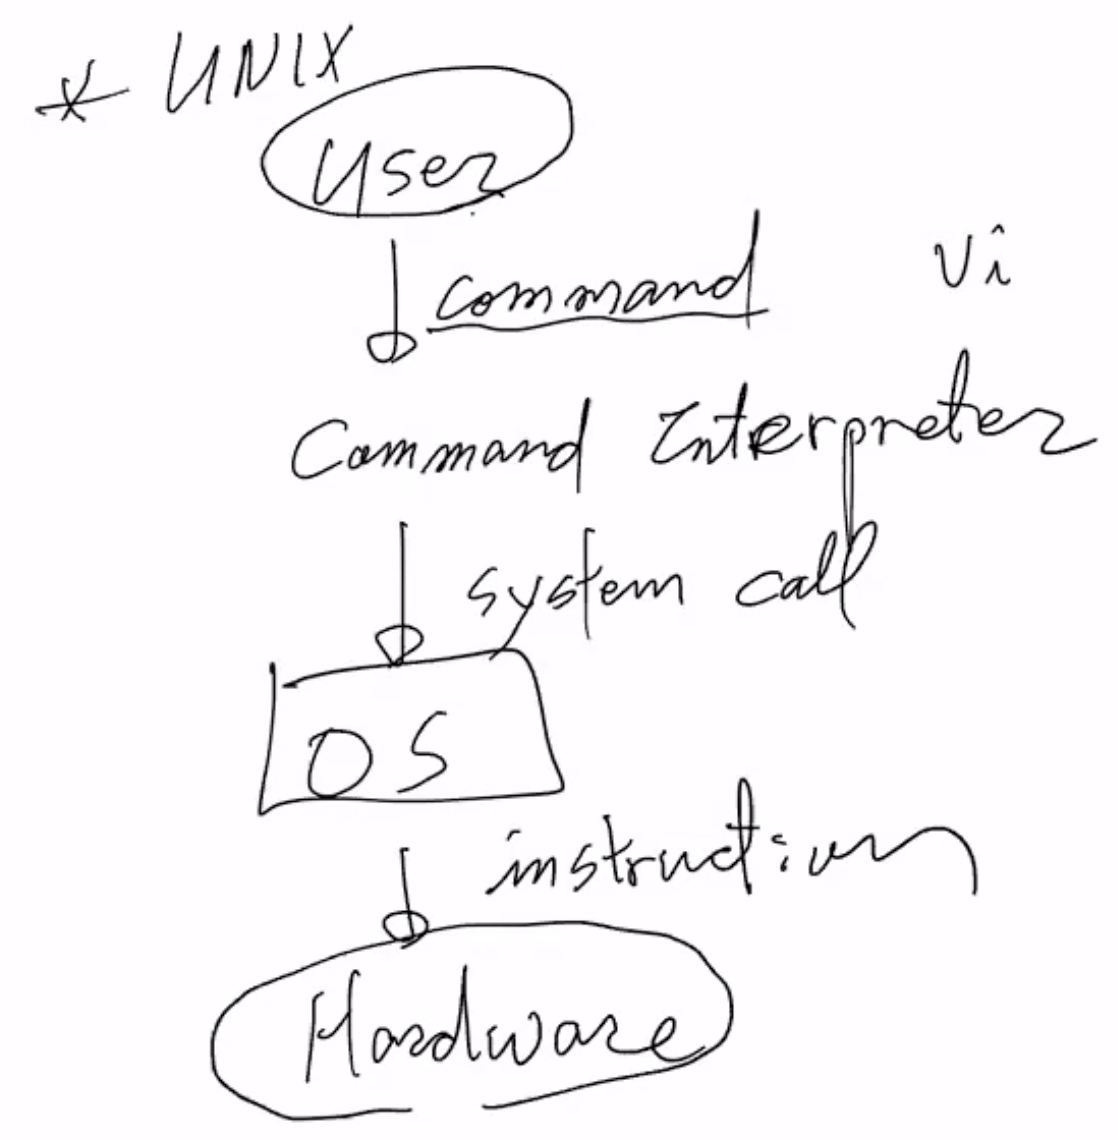 * UNIX
User
command
vi
Command Interpreter
system call
OS
instruction
Hardware